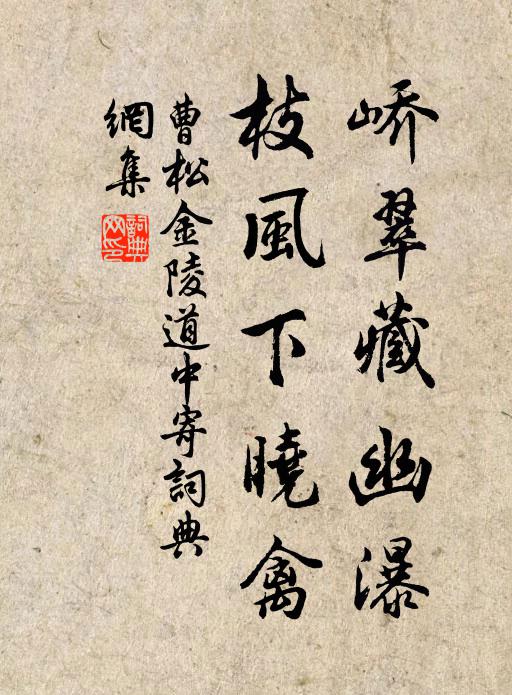 嶠翠藏幽瀑
枝風下曉禽
曹松金陵道中寄詞典
網集
詞典
网印